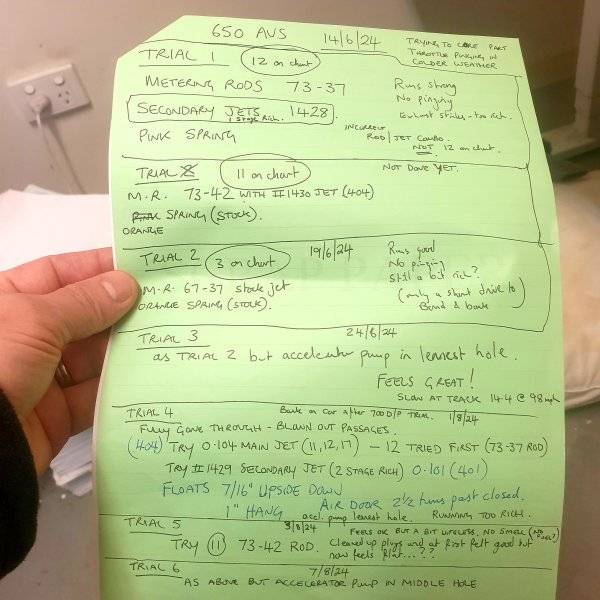 650 AVS 14/6/24 TRYING TO CURE PART
THROTTLE PINGING IN
COLDER WEATHER
TRIAL 1 12 on chart
METERING RODS 73-37 Runs strong
No pinging
SECONDARY JETS 1428. Exhaust stinks - too rich.
1 stage Rich.
PINK SPRING INCORRECT
ROD/JET COMBO.
NOT 12 on chart.
TRIAL 2 11 on chart NOT DONE YET.
M.R. 73-42 WITH #1430 JET (404)
PINK SPRING (STOCK).
ORANGE
TRIAL 2 3 on chart 19/6/24 Runs good
No pinging
Still a bit rich?
M.R. 67-37 stock jet (only a short drive to
ORANGE SPRING (STOCK). Bond & back
TRIAL 3 24/6/24
as TRIAL 2 but accelerator pump in leanest hole.
FEELS GREAT!
SLOW AT TRACK 14.4 @ 98mph
TRIAL 4 Back on car after 700 D/P TRIAL. 1/8/24
FULLY GONE THROUGH - BLOWN OUT PASSAGES.
(404) TRY 0.104 MAIN JET (11, 12, 17) - 12 TRIED FIRST (73-37 ROD)
TRY #1429 SECONDARY JET (2 STAGE RICH) 0.101 (401)
FLOATS 7/16" UPSIDE DOWN
1" HANG AIR DOOR 2 1/2 turns past closed.
accl. pump leanest hole. RUNNING TOO RICH.
TRIAL 5 3/8/24 FEELS OK BUT A BIT LIFELESS. NO SMELL (NO
TRY 11 73-42 ROD. Cleaned up plugs and at first felt good but
now feels flat...??
TRIAL 6 7/8/24
AS ABOVE BUT ACCELERATOR PUMP IN MIDDLE HOLE